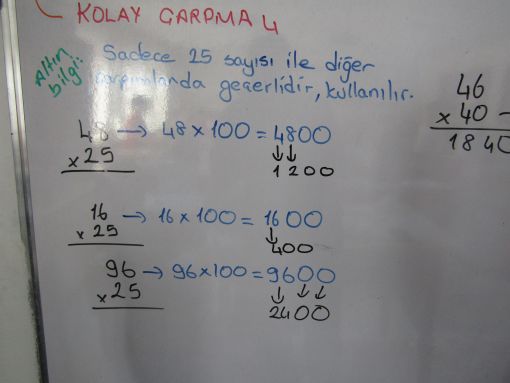 KOLAY ÇARPMA 4
Altın bilgi:
Sadece 25 sayısı ile diğer
çarpımlarda geçerlidir, kullanılır.
46
x 40
1840
48 → 48 x 100 = 4800
x 25
↓↓
1200
16 → 16 x 100 = 1600
x 25
↓
400
96 → 96 x 100 = 9600
x 25
↓ ↓ ↓
2400